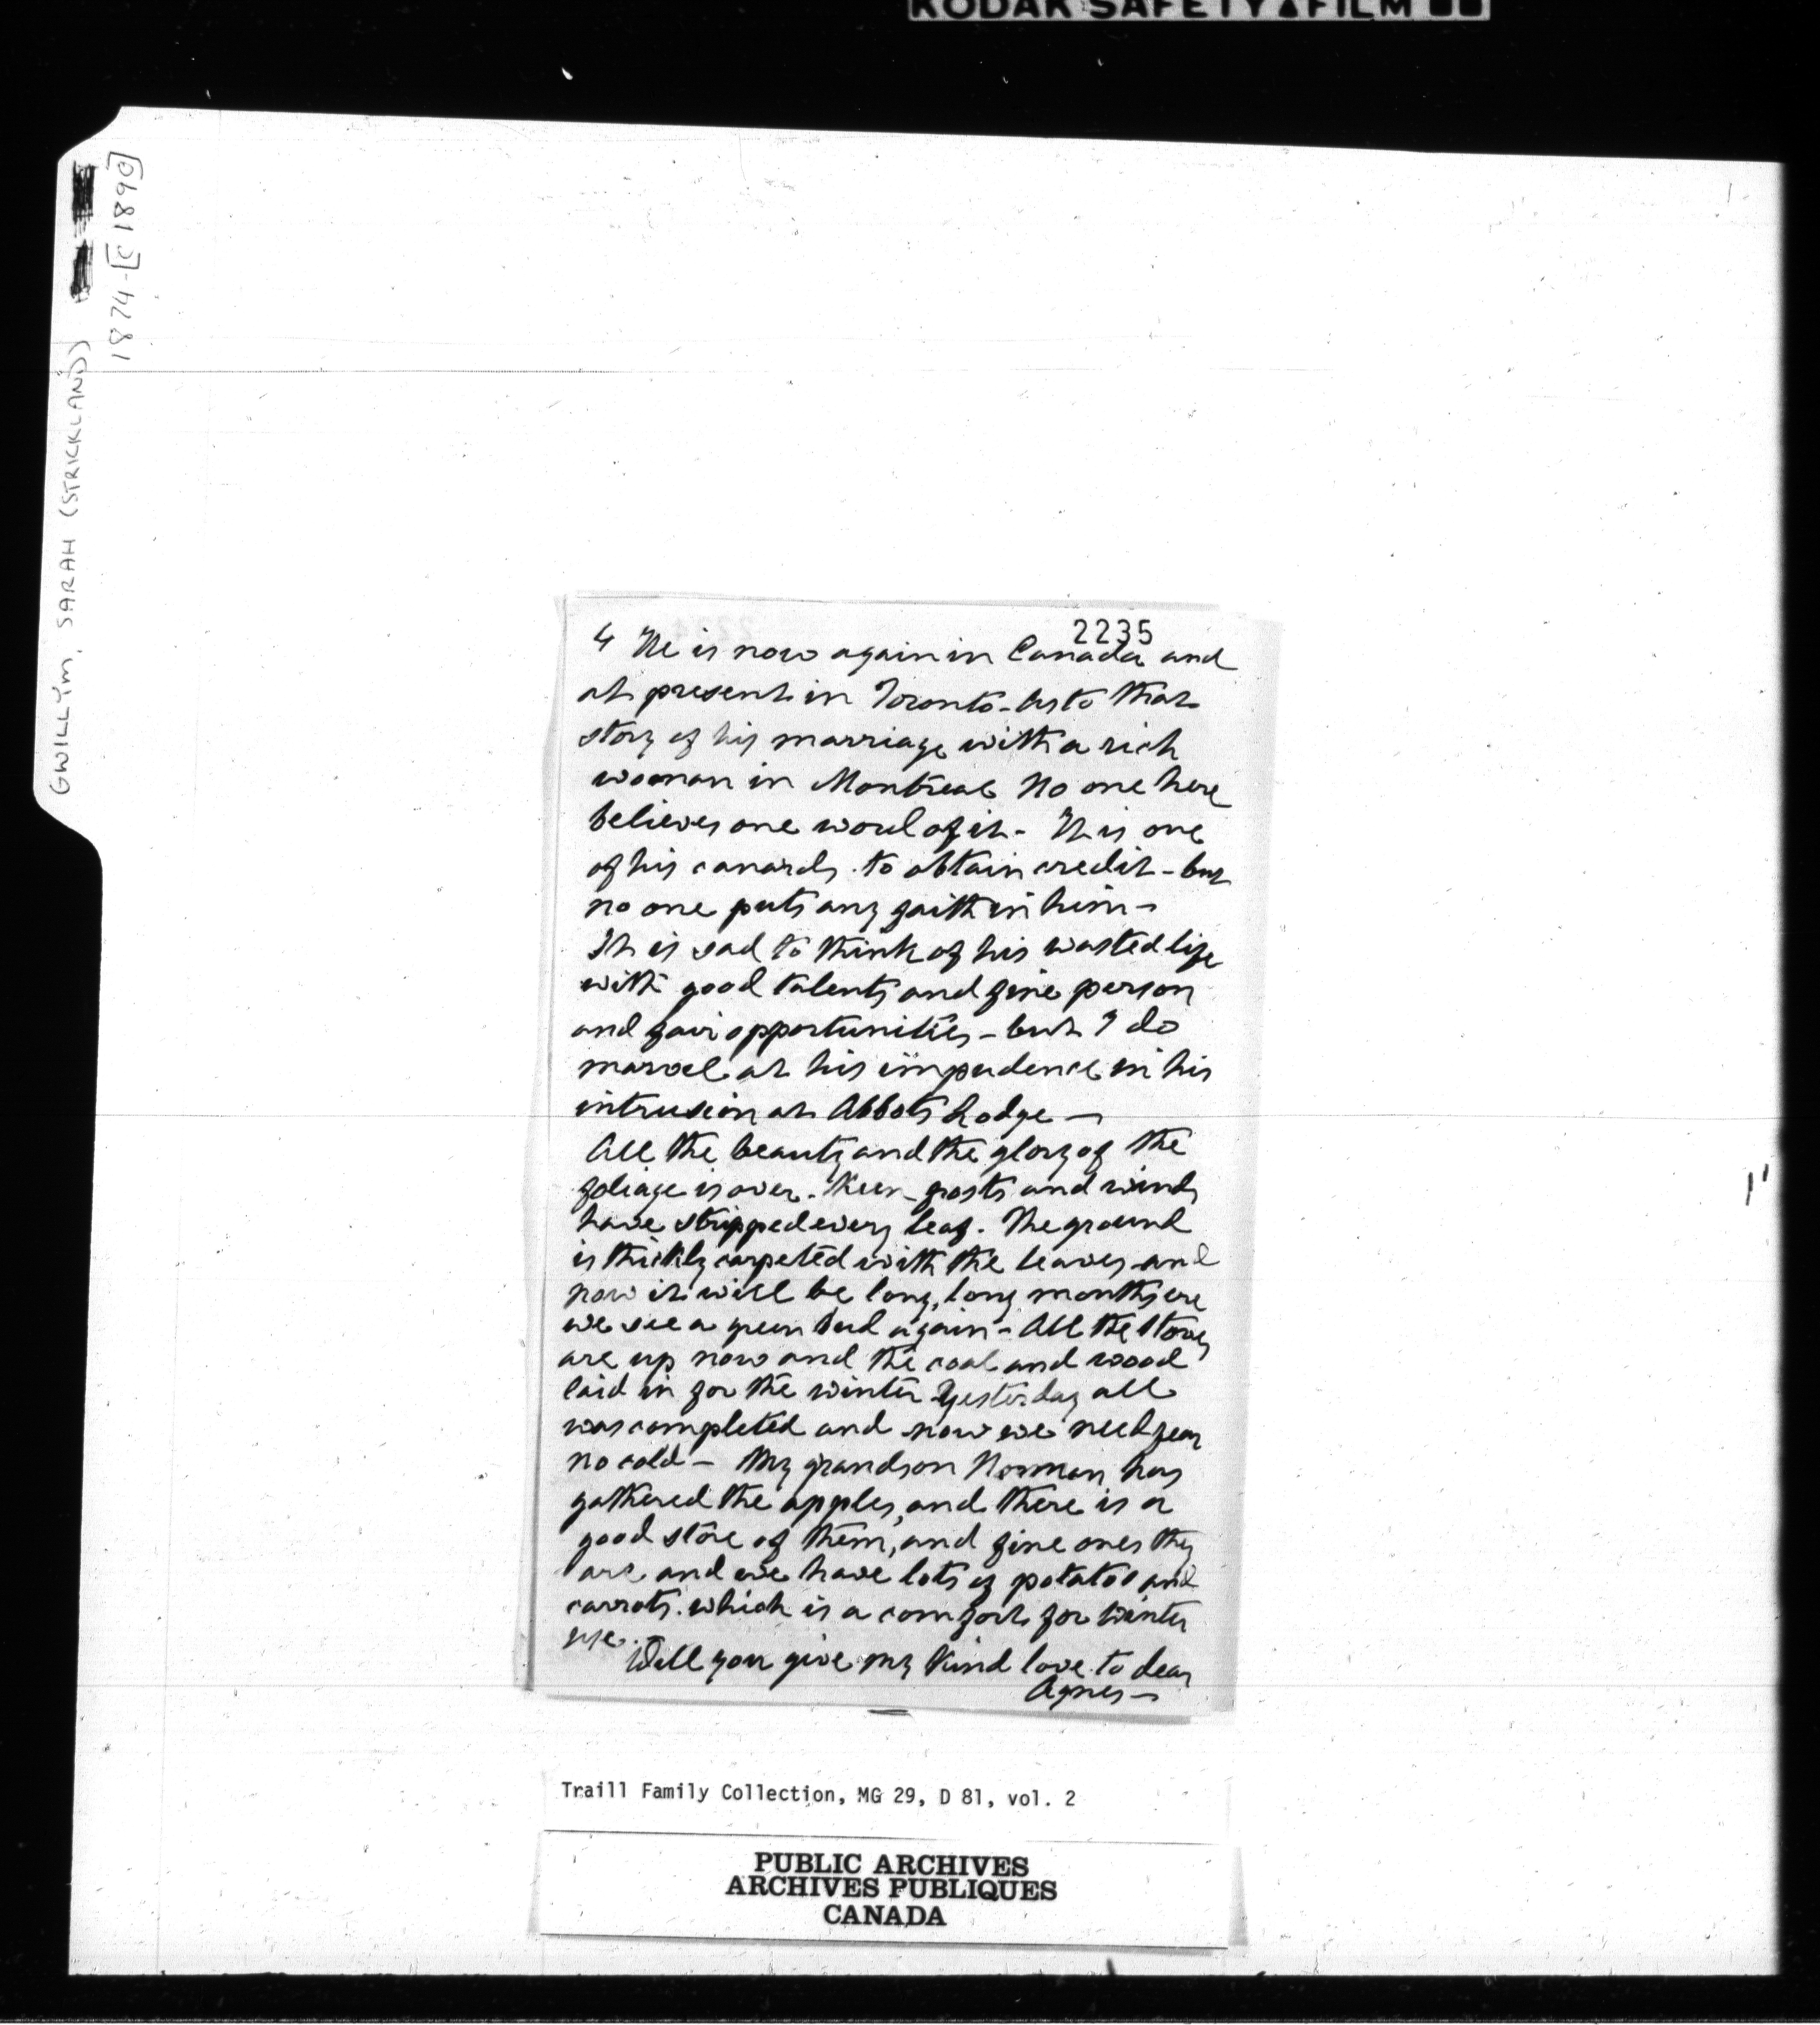 KODAK SAFETY FILM
GWILLYM, SARAH (STRICKLAND)
1874-[C1890]
2235
4 He is now again in Canada and
at present in Toronto - As to that
story of his marriage with a rich
woman in Montreal No one here
believes one word of it - It is one
of his canards to obtain credit - but
no one puts any faith in him -
It is sad to think of his wasted life
with good talents and fine person
and fair opportunities - but I do
marvel at his impudence in his
intrusion at Abbots Lodge -
All the beauty and the glory of the
foliage is over. Keen frosts and winds
have stripped every leaf. The ground
is thickly carpeted with the leaves and
now it will be long, long months ere
we see a green bud again - All the stoves
are up now and the coal and wood
laid in for the winter Yesterday all
was completed and now we need fear
no cold - My grandson Norman has
gathered the apples, and there is a
good store of them, and fine ones they
are and we have lots of potatos and
carrots. which is a comfort for winter
use.
Will you give my kind love to dear
Agnes -
Traill Family Collection, MG 29, D 81, vol. 2
PUBLIC ARCHIVES
ARCHIVES PUBLIQUES
CANADA